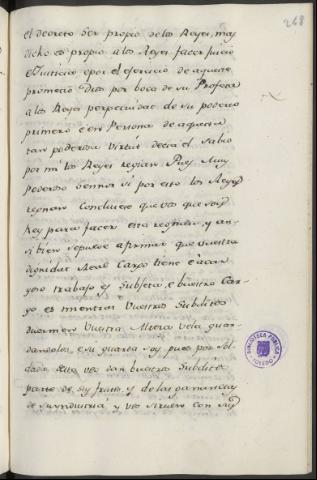 268
el decreto ser propio de los Reyes, mas
dicho es propio a los Reyes facer Juicio
e Justicia e por el ejercicio de aqueste
prometio Dios por boca de su Profeta
a los Reyes perpetuidad de su poderio
primero e en Persona de aquesta
tan poderosa Virtut decia el Sabio
por mi los Reyes regnan Pues Muy
Poderoso Sennor si por esto los Reyes
regnan Concluiese que vos que soys
Rey para facer esto regnais, y an
si bien se puede afirmar que vuestra
dignidat Real Cargo tiene e a car
goso trabajo es Subjeta, e vuestro Car
go es mientras Vuestros Subditos
duermen Vuestra Alteza vela guar
dandolos, e su guarda soys pues por sol
dada desto vos dan vuestros Subditos
parte de sus frutos, y de las ganancias
de su industria, y vos sirven con sus
BIBLIOTECA PÚBLICA
TOLEDO